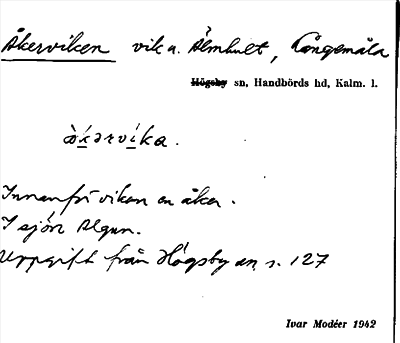 Åkerviken vik a. Älmhult, Långemåla
Högsby sn, Handbörds hd, Kalm. l.
Innanför viken en åker.
I sjön Algun.
Uppgift från Högsby sn, s. 127
Ivar Modéer 1942